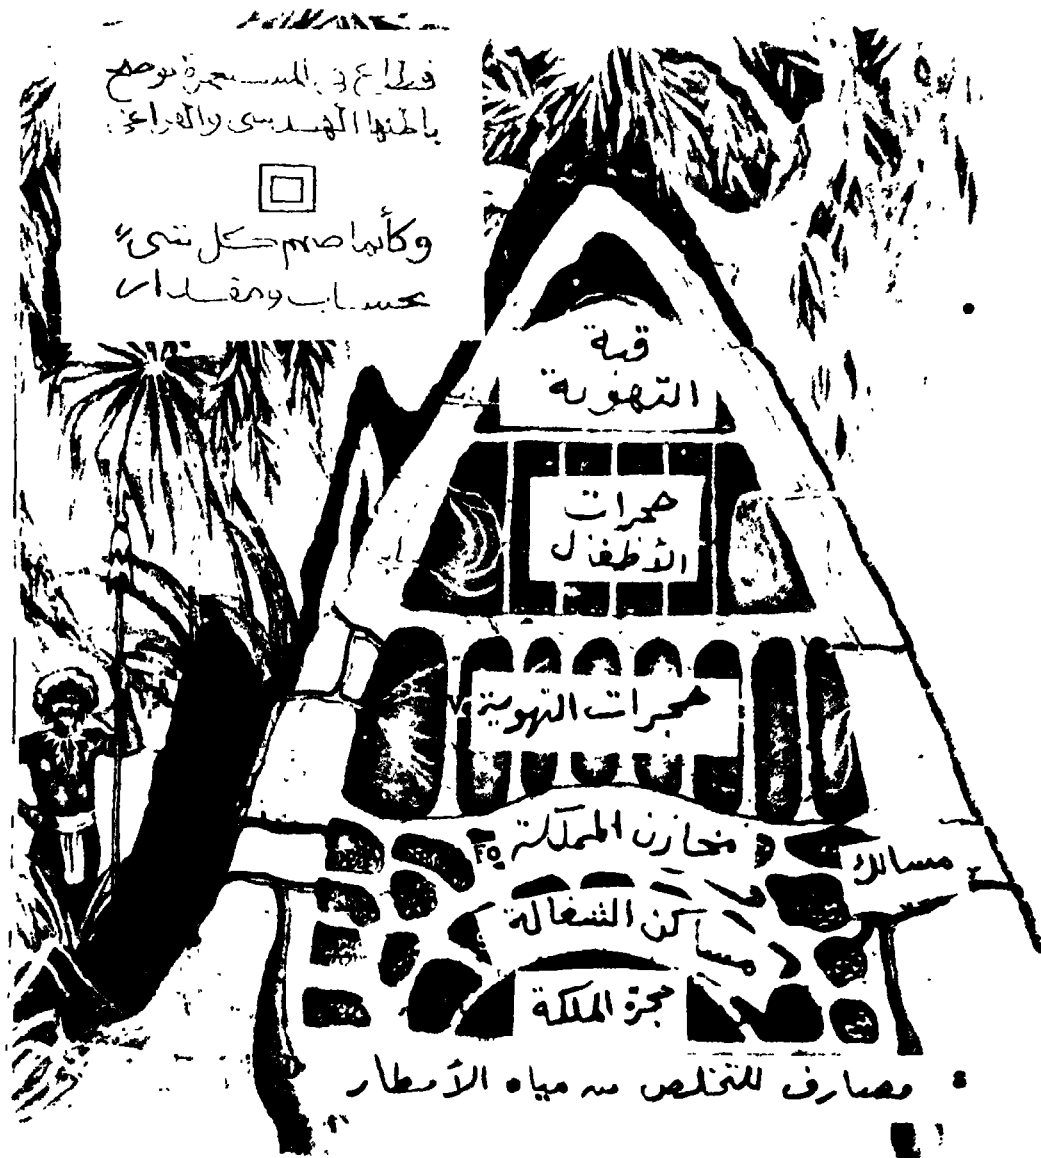 قطاع في المستعمرة يوضح
باطنها الهندسي والفراغي.
وكأنما صمم كل شيء
بحساب ومقدار
قبة
التهوية
حجرات
الأطفال
حجرات التهوية
مخازن المملكة
مسالك
مساكن الشغالة
حجرة الملكة
مصارف للتخلص من مياه الأمطار